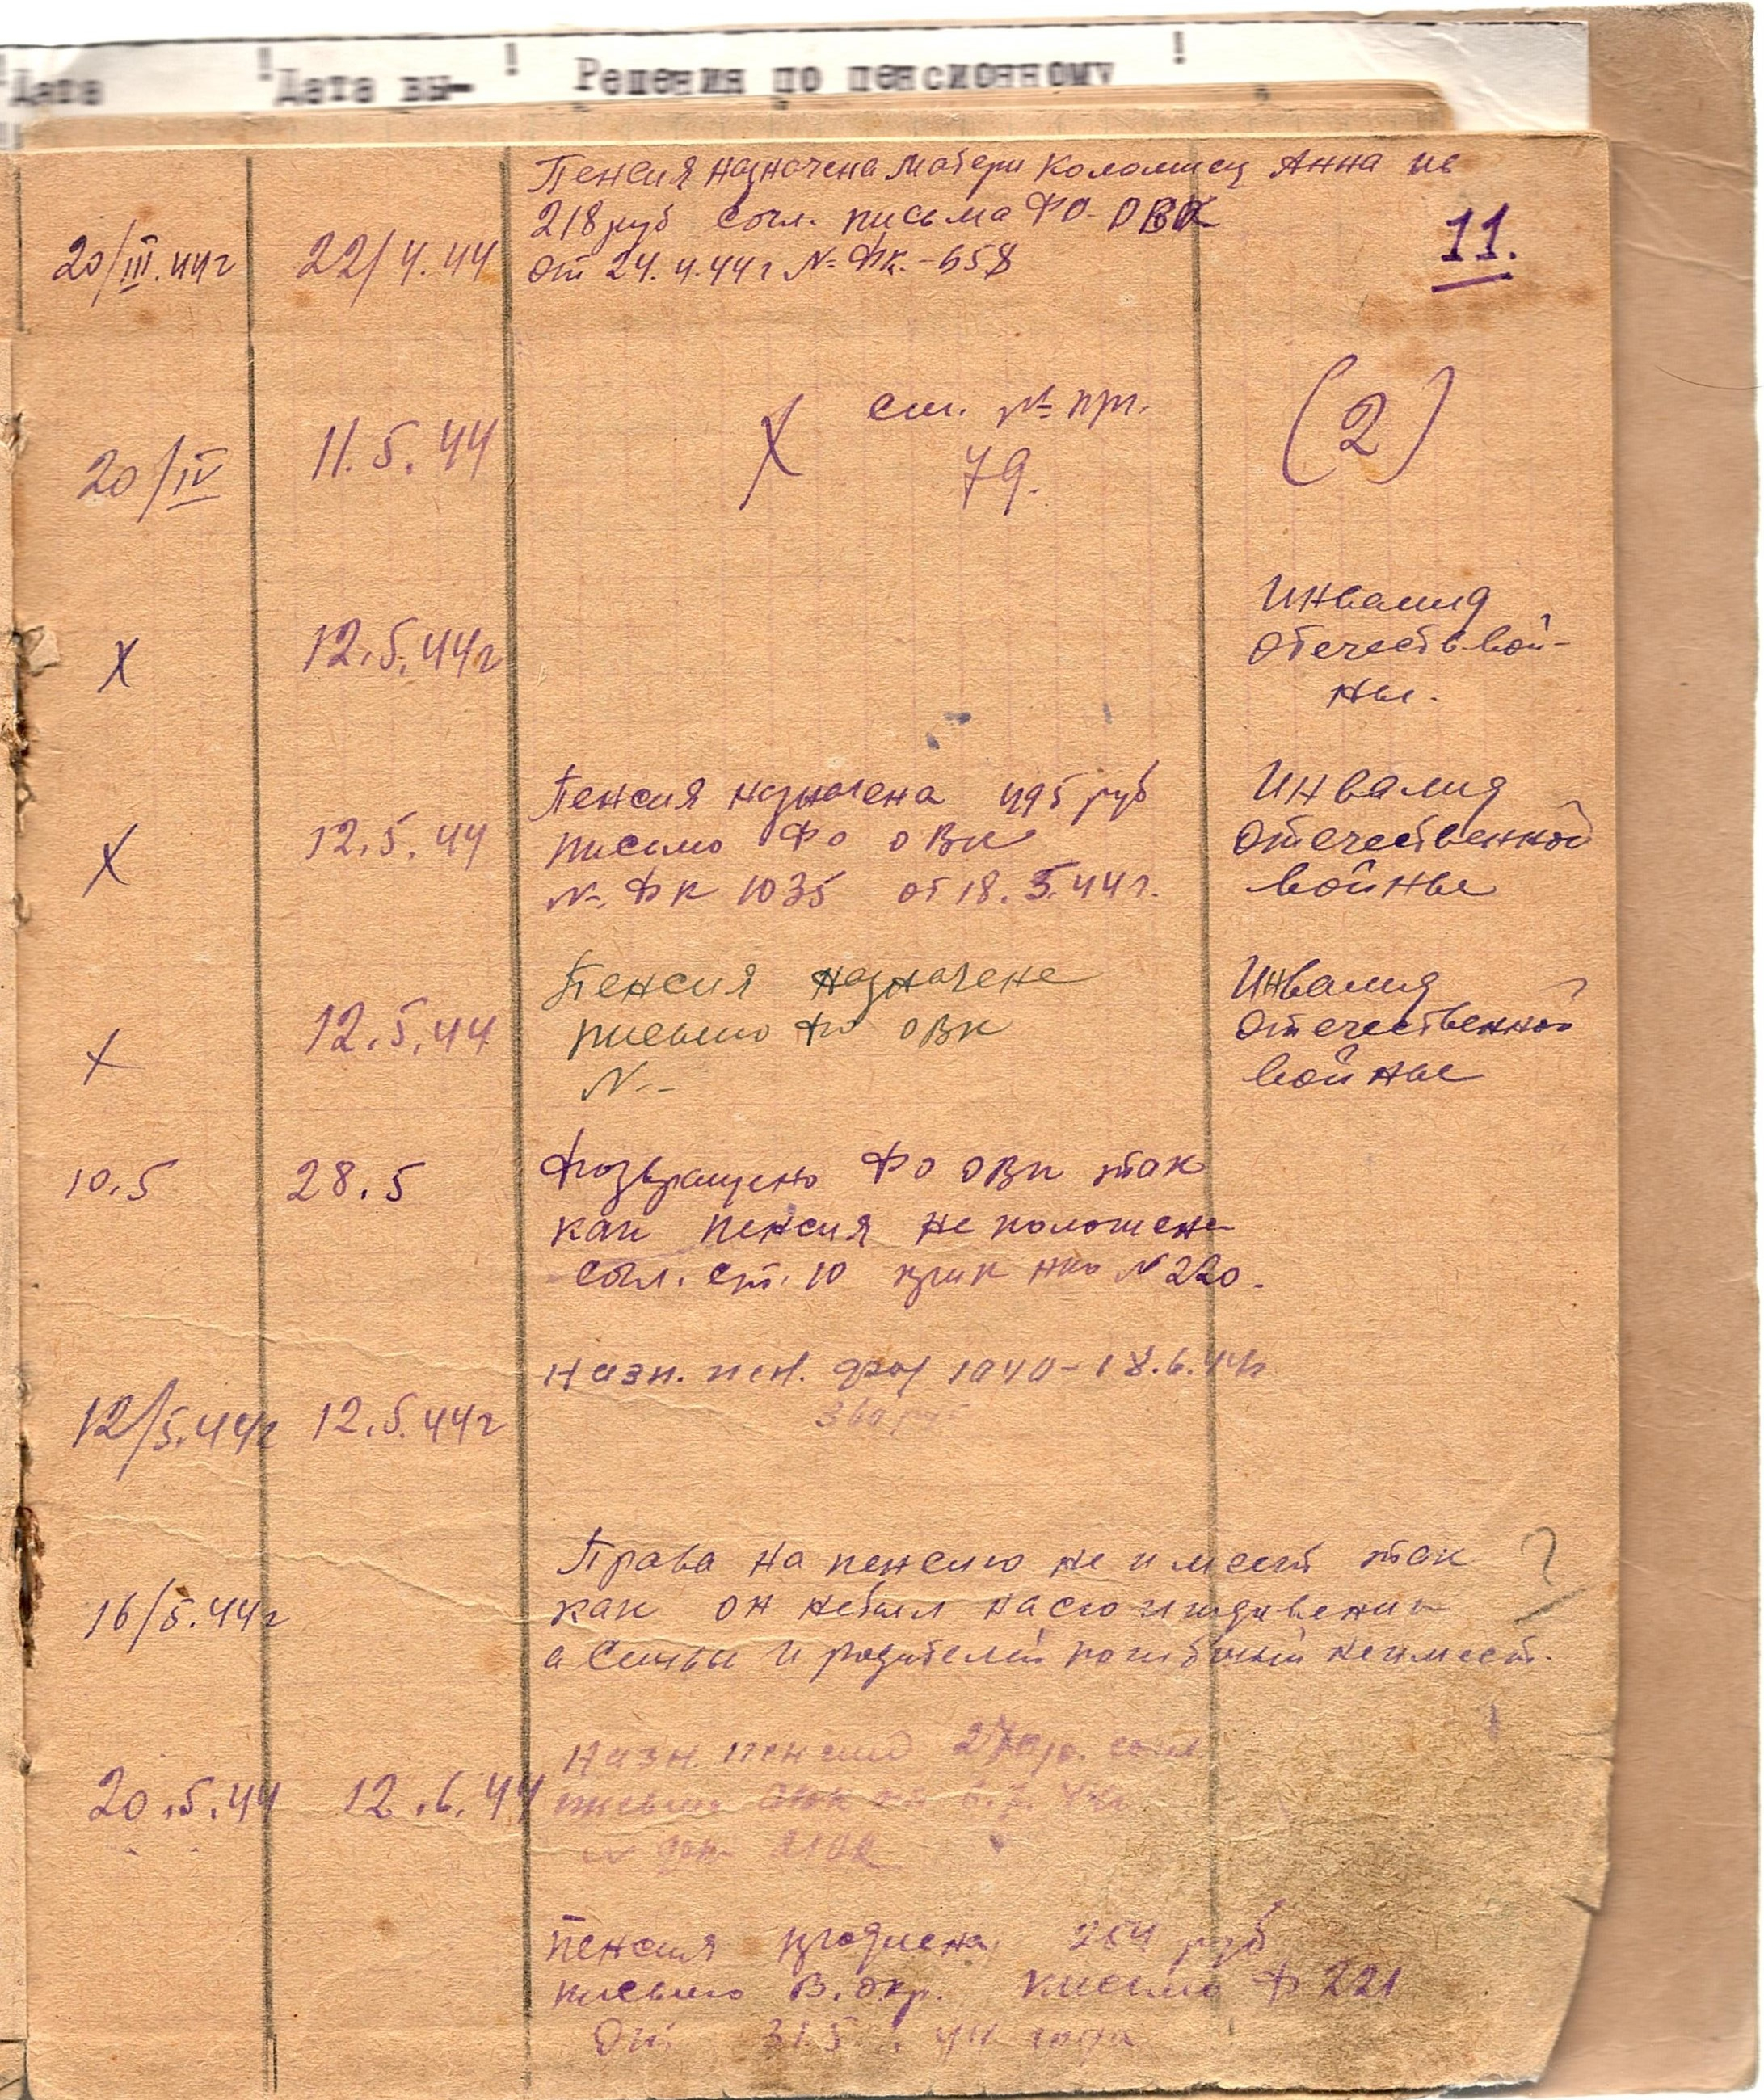 Дата Дата вы- Решения по пенсионному
Пенсия назначена матери Коломиец Анна
218 руб согл. письма ФО-ОВК
20/III.44г 22/4.44 от 24.4.44г № Фк.-658
11.
см. № пр.
20/IV 11.5.44 X 79. (2)
Инвалид
X 12.5.44г Отечеств вой-
ны.
Пенсия назначена 495 руб Инвалид
X 12.5.44 письмо ФО ОВК Отечественной
№ ФК 1035 от 18.5.44г. войны
Пенсия назначене Инвалид
X 12.5.44 письмо ФО ОВК Отечественной
№- войны
10.5 28.5 Возвращено ФО ОВК так
как пенсия не положена
согл. ст. 10 прик НКО № 220-
Назн. пен. 1040-18.6.44г
12/5.44г 12.5.44г 360 руб
Права на пенсию не имеет так ?
16/5.44г как он небыл на
а семьи и родителей неимеет.
Назн. пенсия 270р. согл
20.5.44 12.6.44 письма
№
Пенсия 254 руб
письмо В.окр. письмо Ф 221
От 31.5.44 года